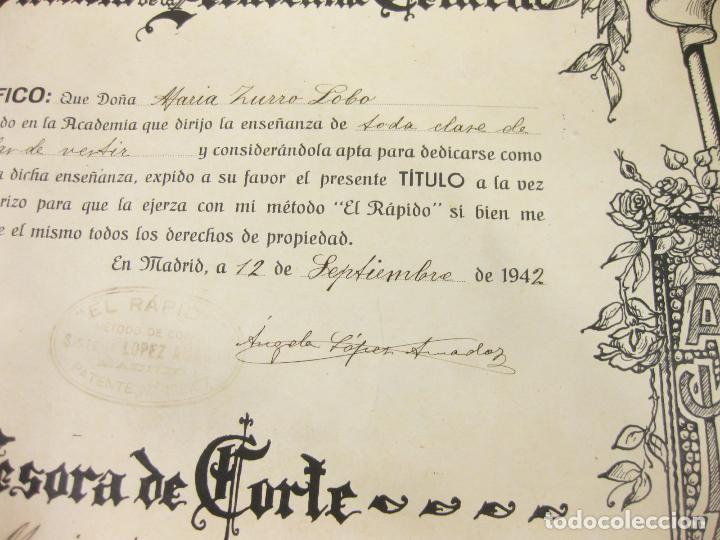 FICO: Que Doña Maria Zurro Lobo
do en la Academia que dirijo la enseñanza de toda clase de
de vestir y considerándola apta para dedicarse como
a dicha enseñanza, expido a su favor el presente TÍTULO a la vez
rizo para que la ejerza con mi método "El Rápido" si bien me
e el mismo todos los derechos de propiedad.
En Madrid, a 12 de Septiembre de 1942
"EL RÁPID
METODO DE CO
SISTE LOPEZ
MADRID
PATENTE
Ángela López Amador
esora de Corte
todocoleccion.net